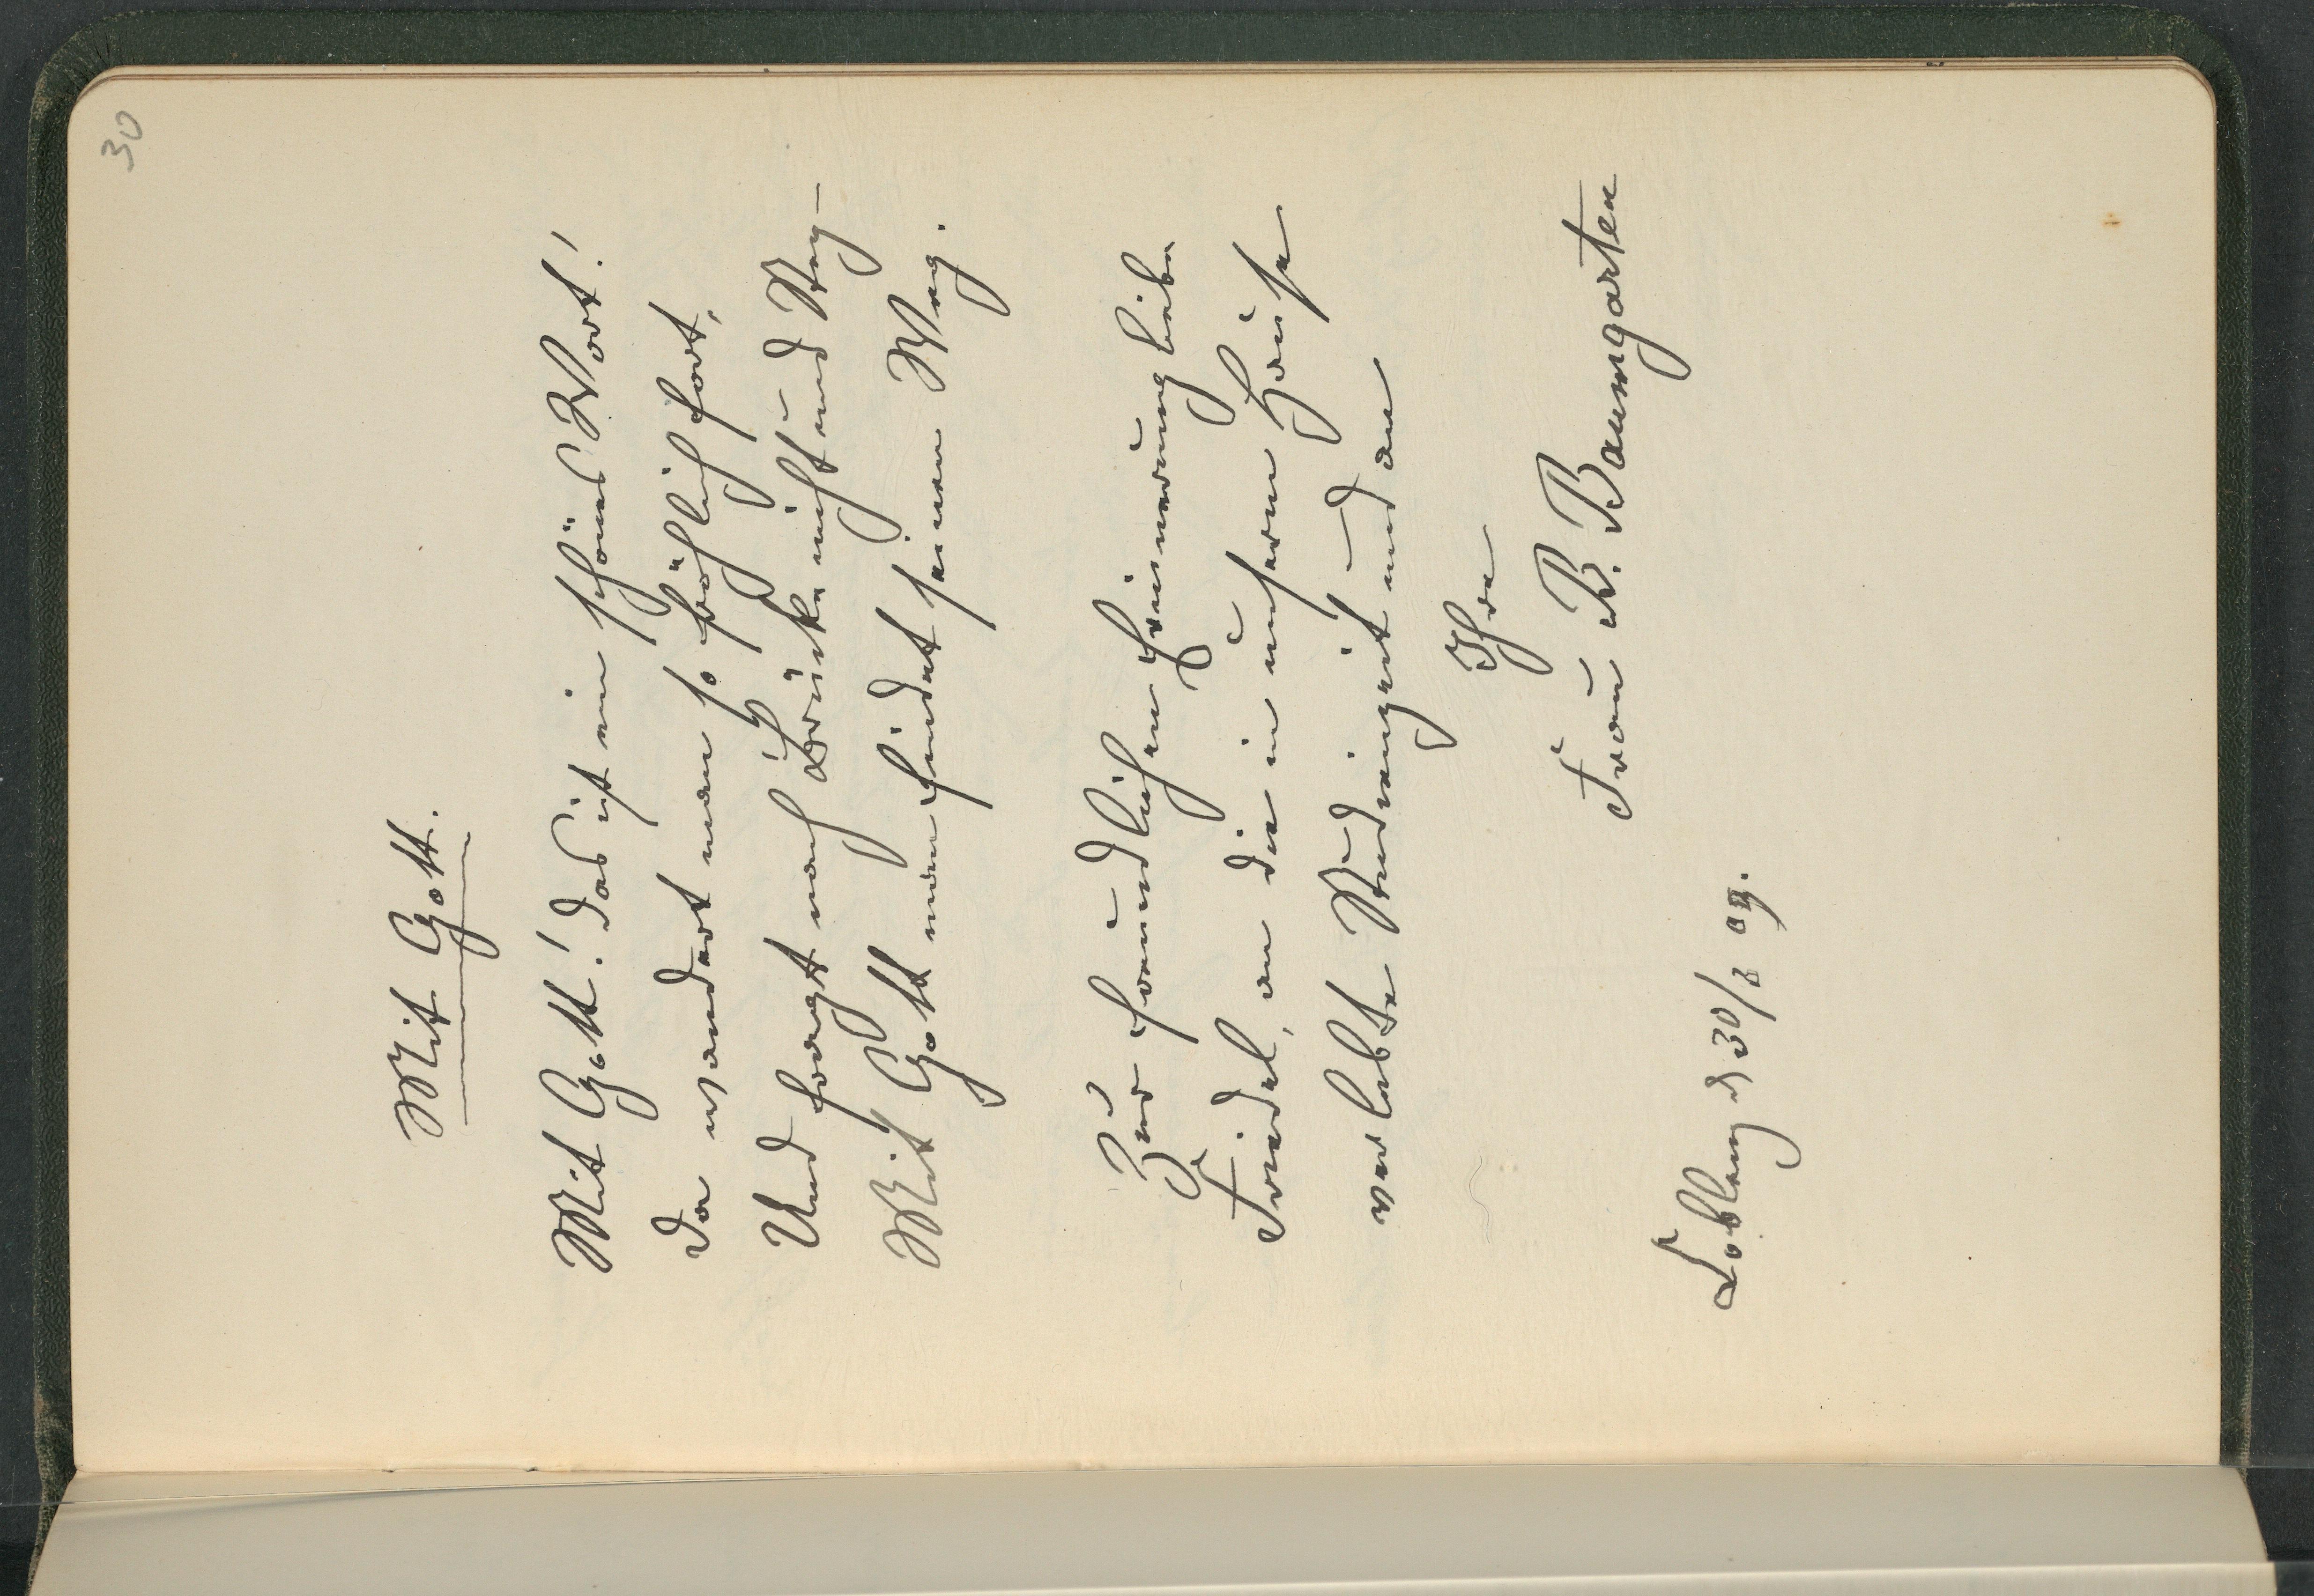 30
Mit Gott.
Mit Gott! das ist ein schönes Wort!
Da wandert man so fröhlich fort,
Und fragt nach Brücke nicht und Steg –
Mit Gott man findet seinen Weg.
Zur freundlichen Erinnerung liebe
Friedel, an die in unserem Hause
verlebte Studienzeit und an
Ihre
Frau B. Baumgarten
Coblenz d 30/3 09.